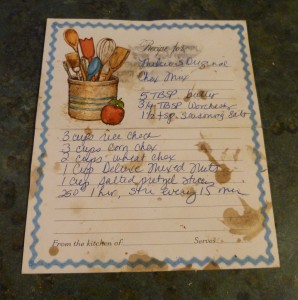 Recipe for:
Original
Chex Mix
5 TBSP butter
TBSP
tsp. Seasoning Salt
3 cups rice check
3 cups corn chex
2 cups wheat chex
1 cup Deluxe Mixed Nuts
1 cup salted pretzel
250 1 hr, stir every 15 min
From the kitchen of
Serves